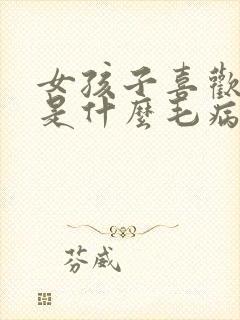 女孩子喜歡
是什麼毛病
芬威